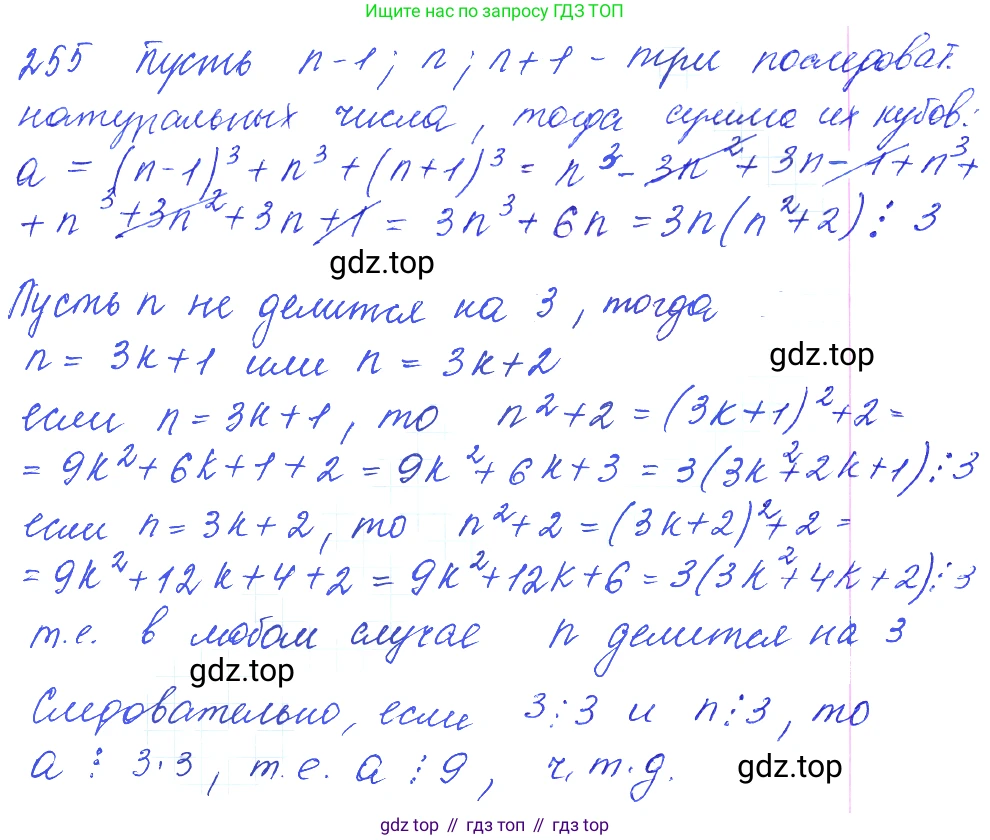 Ищите нас по запросу ГДЗ ТОП
255 Пусть n-1; n; n+1 - три последоват.
натуральных числа, тогда сумма их кубов:
a = (n-1)³ + n³ + (n+1)³ = n³ - 3n² + 3n - 1 + n³ +
+ n³ + 3n² + 3n + 1 = 3n³ + 6n = 3n(n²+2) ⋮ 3
gdz.top
Пусть n не делится на 3, тогда
n = 3k+1 или n = 3k+2
gdz.top
если n = 3k+1, то n²+2 = (3k+1)²+2 =
= 9k² + 6k + 1 + 2 = 9k² + 6k + 3 = 3(3k²+2k+1) ⋮ 3
если n = 3k+2, то n²+2 = (3k+2)²+2 =
= 9k² + 12k + 4 + 2 = 9k² + 12k + 6 = 3(3k²+4k+2) ⋮ 3
т.е. в любом случае n делится на 3
gdz.top
Следовательно, если 3 ⋮ 3 и n ⋮ 3, то
a ⋮ 3·3, т.е. a ⋮ 9, ч.т.д.
gdz.top
gdz top // гдз топ // gdz top